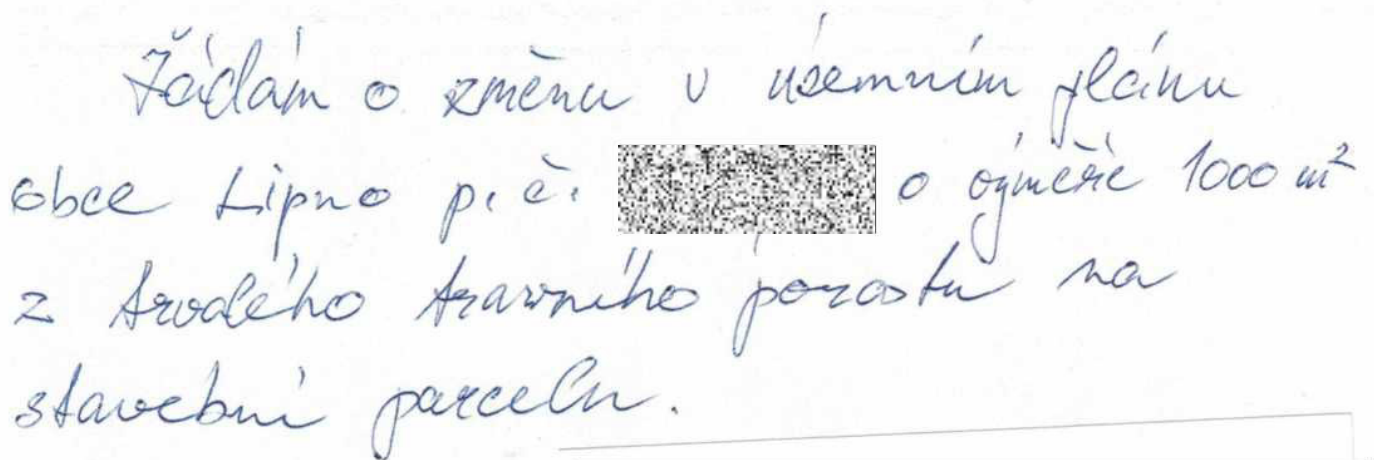 Žádám o změnu v územním plánu
obce Lipno p.č. o výměře 1000 m²
z trvalého travního porostu na
stavební parcelu.